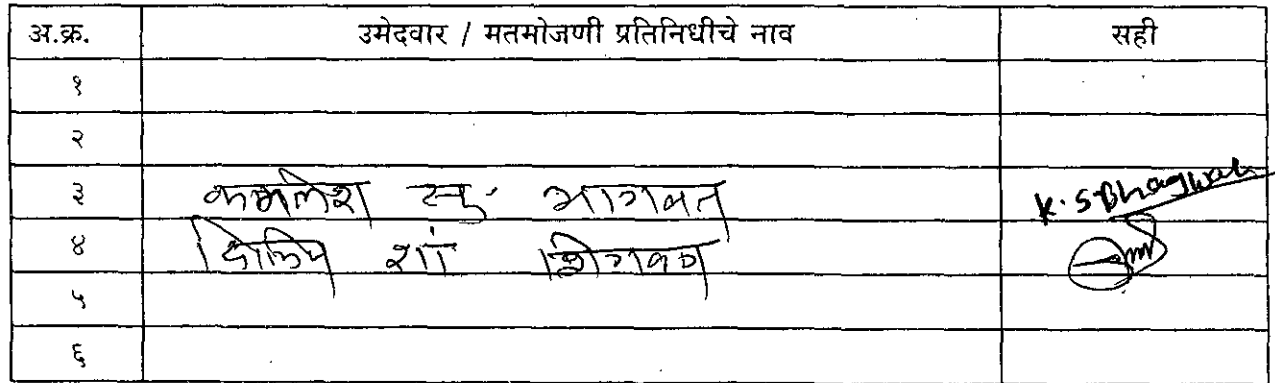 अ.क्र. उमेदवार / मतमोजणी प्रतिनिधीचे नाव सही
१
२
३ कमलेश सु. भागवत K.S Bhagwat
४ दिलिप शां शिगवण
५
६